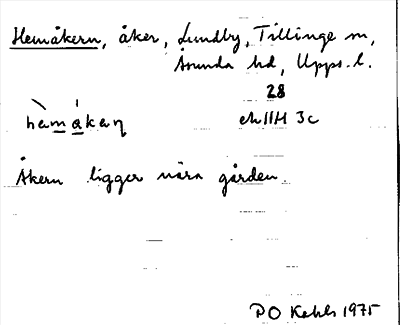 Hemåkern, åker, Lundby, Tillinge sn,
Åsunda hd, Upps. l.
28
hemåkaɳ ek 11H 3c
Åkern ligger nära gården.
P O Kahls 1975